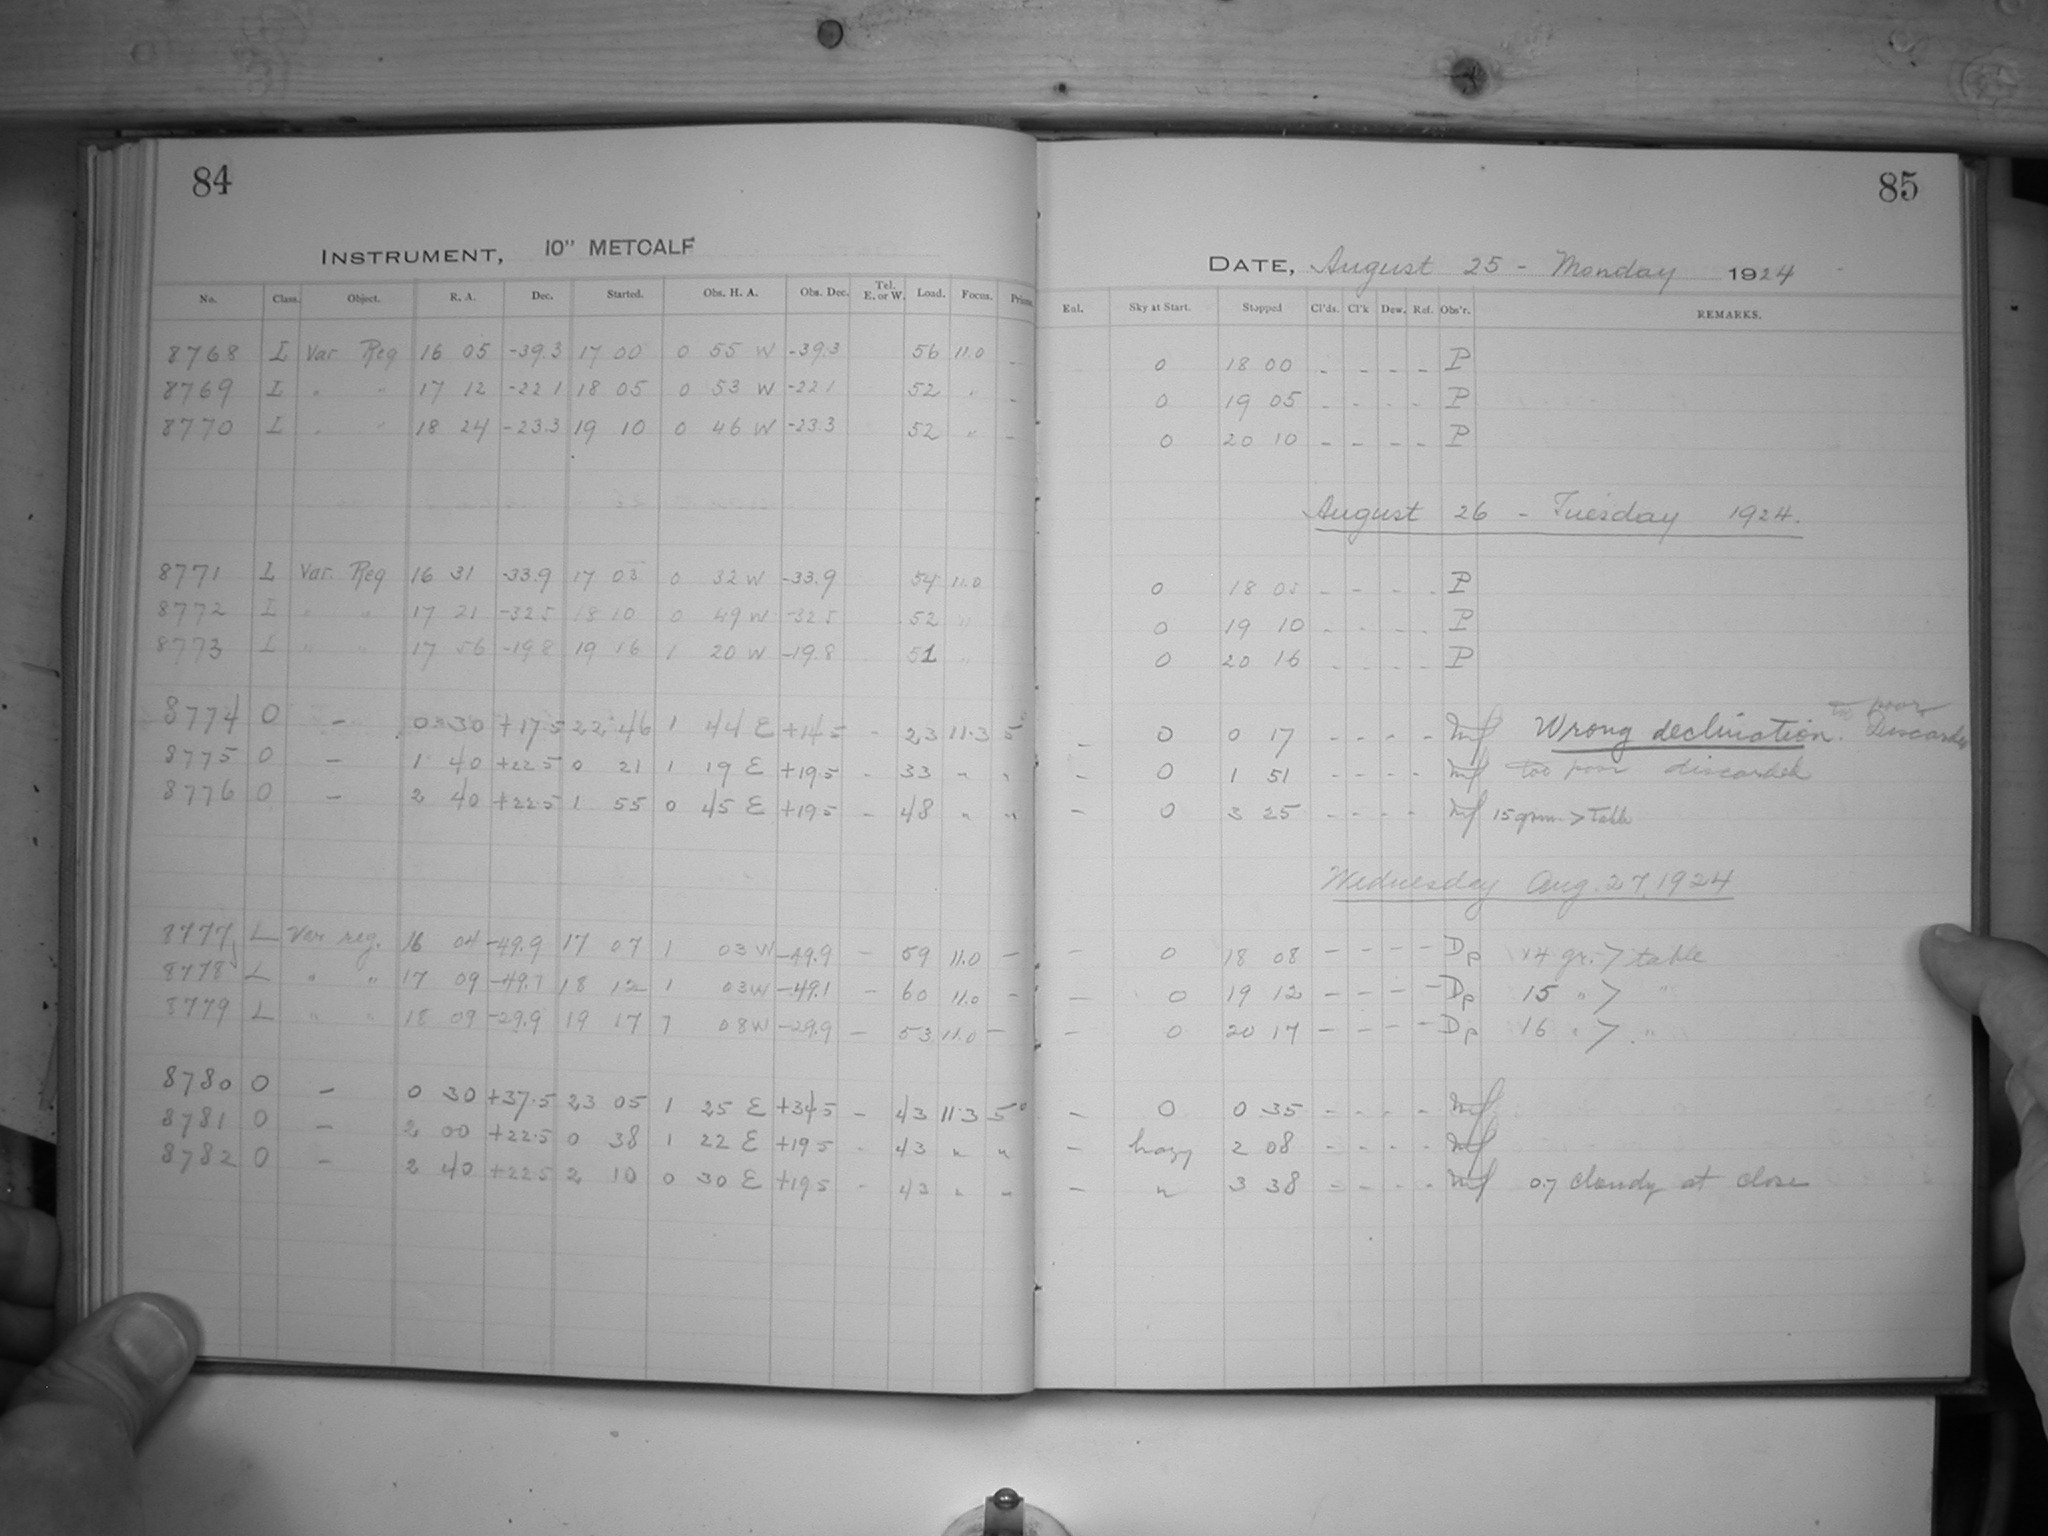 84
INSTRUMENT, 10" METCALF
No. Class. Object. R. A. Dec. Started. Obs. H. A. Obs. Dec. Tel. E. or W. Load. Focus. Prism.
8768 I Var Reg 16 05 -39.3 17 00 0 55 W -39.3 56 11.0 -
8769 I " " 17 12 -22 1 18 05 0 53 W -22 1 52 " -
8770 I " " 18 24 -23.3 19 10 0 46 W -23.3 52 " -
8771 I Var. Reg 16 31 -33.9 17 05 0 32 W -33.9 54 11.0
8772 I " " 17 21 -32 5 18 10 0 49 W -32 5 52 "
8773 I " " 17 56 -19 8 19 16 1 20 W -19.8 51 "
8774 O - 0 30 +17.5 22 46 1 44 E +14 5 - 23 11.3 5°
8775 O - 1 40 +22.5 0 21 1 19 E +19.5 - 33 " "
8776 O - 2 40 +22.5 1 55 0 45 E +19 5 - 48 " "
8777 L Var reg. 16 04 -49.9 17 07 1 03 W -49.9 - 59 11.0 -
8778 L " " 17 09 -49.1 18 12 1 03 W -49.1 - 60 11.0 -
8779 L " " 18 09 -29.9 19 17 1 08 W -29.9 - 53 11.0 -
8780 O - 0 30 +37.5 23 05 1 25 E +34 5 - 43 11.3 5°
8781 O - 2 00 +22.5 0 38 1 22 E +19 5 - 43 " "
8782 O - 2 40 +22 5 2 10 0 30 E +19 5 - 43 " "
85
DATE, August 25 - Monday 1924
Enl. Sky at Start. Stopped Cl'ds. Cl'k Dew. Ref. Obs'r. REMARKS.
0 18 00 - - - - P
0 19 05 - - - - P
0 20 10 - - - - P
August 26 - Tuesday 1924.
0 18 05 - - - - P
0 19 10 - - - - P
0 20 16 - - - - P
too poor
- 0 0 17 - - - - Mf Wrong declination. Discarded
- 0 1 51 - - - - Mf too poor discarded
- 0 3 25 - - - - Mf 15 grm. > Table
Wednesday Aug. 27, 1924
- 0 18 08 - - - - Dp 14 gr. > table
- 0 19 12 - - - - Dp 15 " > "
- 0 20 17 - - - - Dp 16 " > "
- 0 0 35 - - - - Mf
- hazy 2 08 - - - - Mf
- " 3 38 - - - - Mf 0.7 cloudy at close